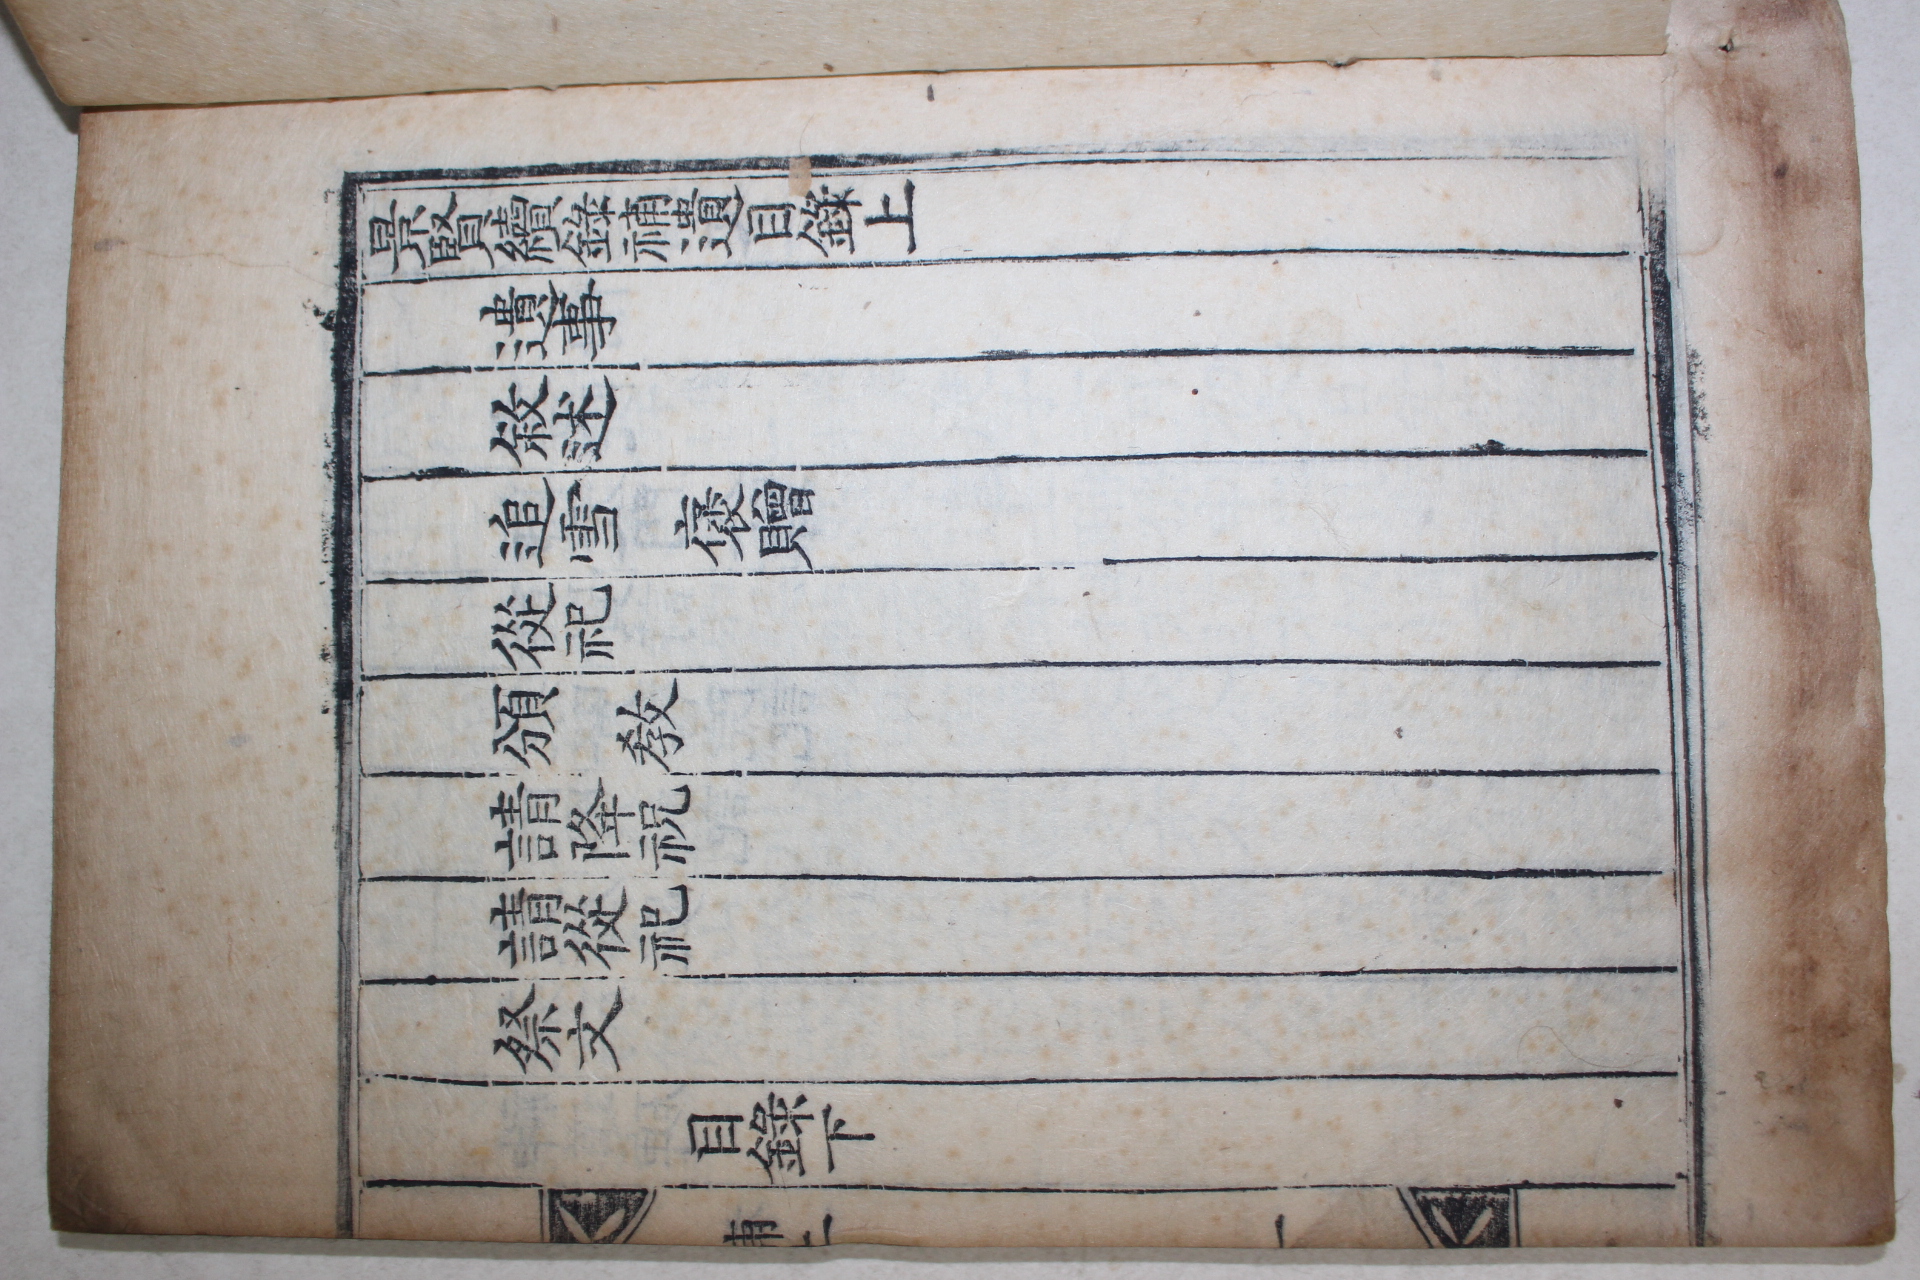 景賢續錄補遺目錄上
遺事
敘述
追雪 褒贈
從祀
頒 敎
請降祝
請從祀
祭文
目錄下
補上
一